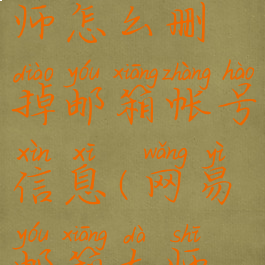 师怎么删
diào yóu xiāng zhàng hào
掉邮箱帐号
xìn xī wǎng yì
信息(网易
yóu xiāng dà shī
邮箱大师